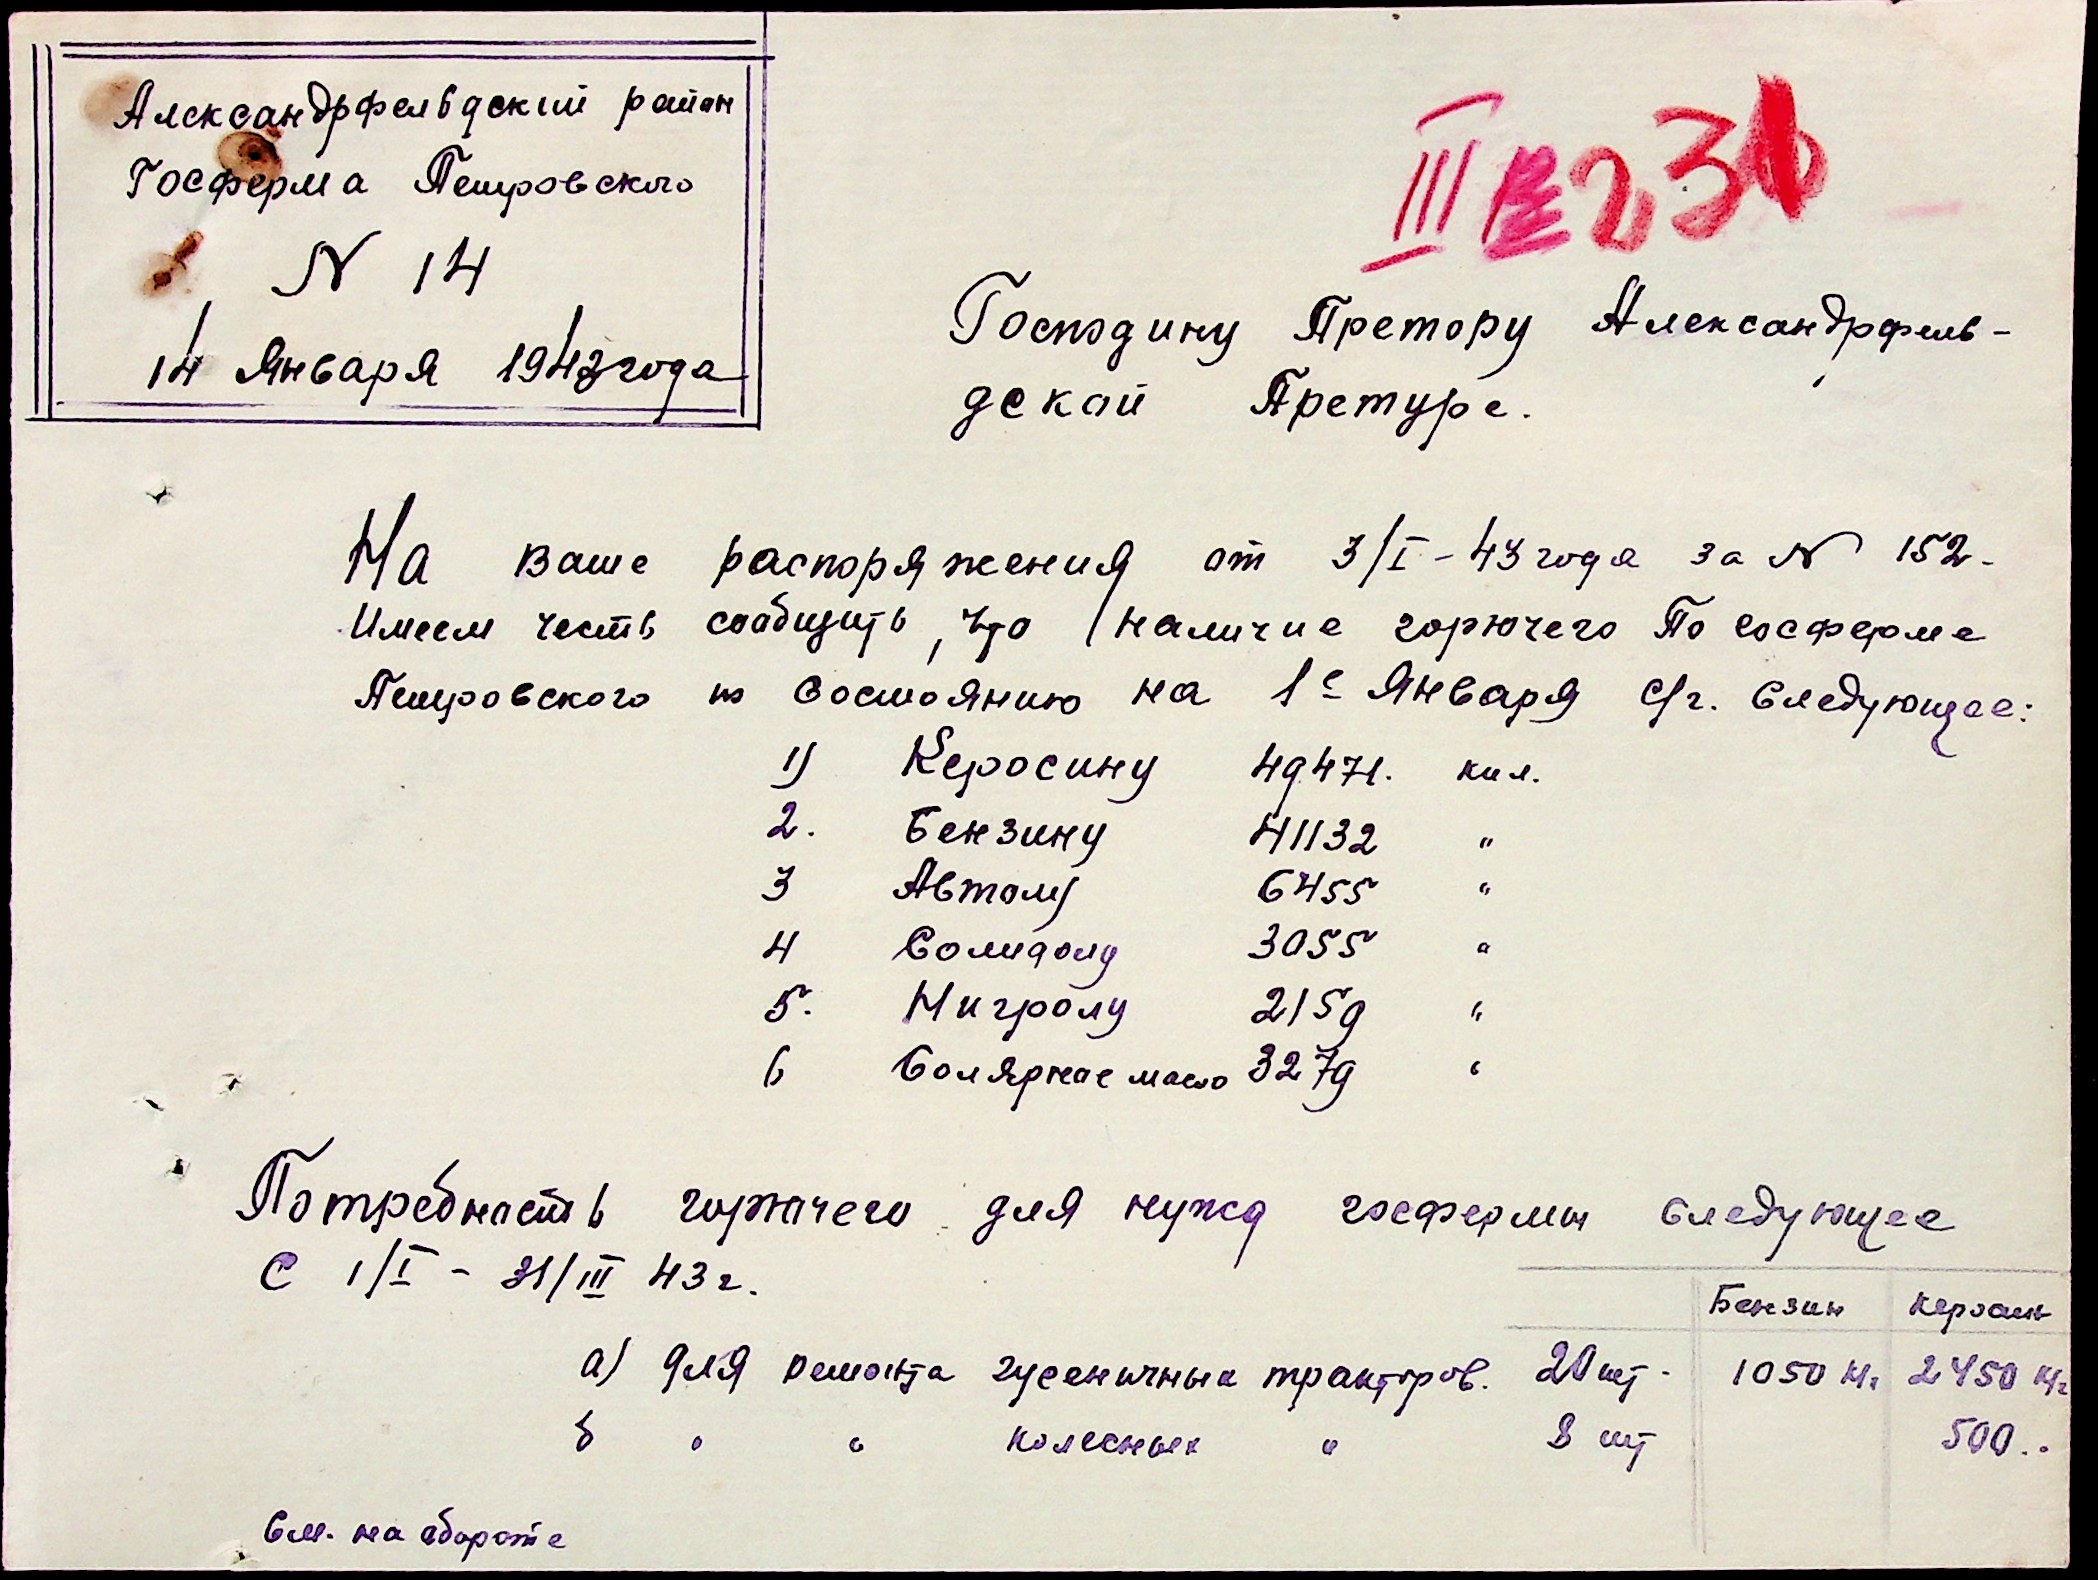 Александрфельдский район
Госферма Петровского
N 14
14 Января 1943 года
III 23
Господину Претору Александрфель-
дской Претуре.
На Ваше распоряжения от 3/I-43 года за N 152-
Имеем честь сообщить, что наличие горючего По госферме
Петровского по Состоянию на 1е Января с/г. Следующее:
1) Керосину 49471. кил.
2. Бензину 41132 "
3 Автолу 6455 "
4 Солидолу 3055 "
5. Нигролу 2159 "
6 Солярное масло 3279 "
Потребность горючего для нужд госфермы Следующее
С 1/I - 31/III 43 г.
Бензин Керосин
а) для ремонта гусеничных тракторов. 20 шт - 1050 Кг 2450 Кг
б " " колесных " 8 шт 500..
См. на обороте